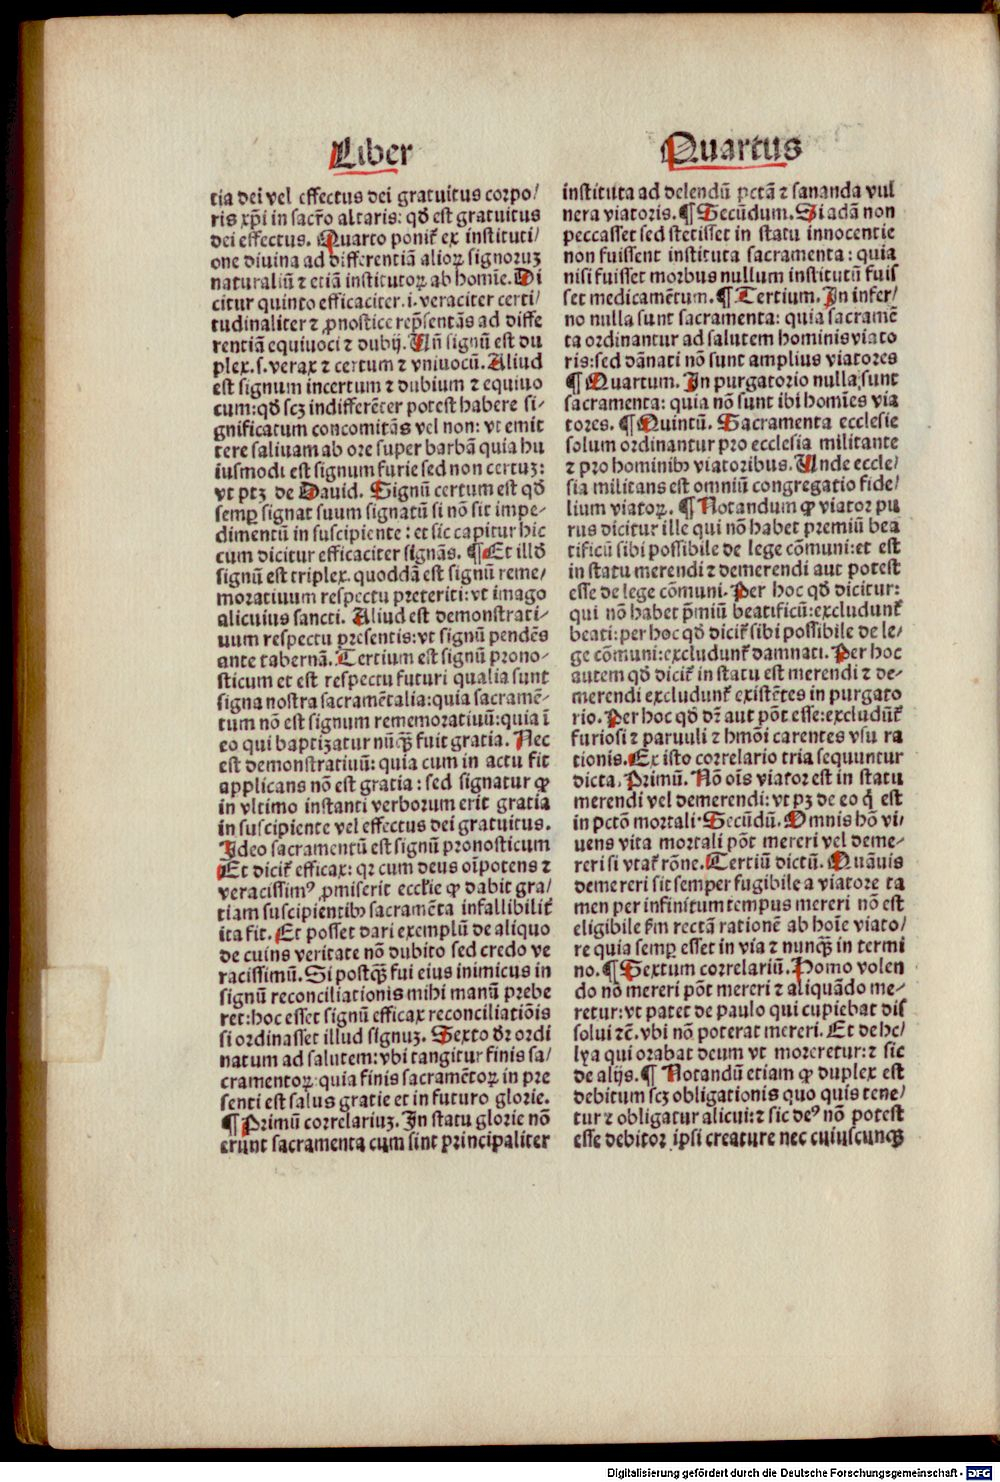 Liber
Quartus
tia dei vel effectus dei gratuitus corpo/
ris xp̄i in sacr̄o altaris: qđ est gratuitus
dei effectus. Quarto poniť ex instituti/
one diuina ad differentiã alioꝝ signoruꝫ
naturaliũ ⁊ etiã institutoꝝ ab homīe. Di
citur quinto efficaciter .i. veraciter certi/
tudinaliter ⁊ ꝓnostice rep̄sentãs ad diffe
rentiã equiuoci ⁊ dubij. Uñ signũ est du
plex. s. verax ⁊ certum ⁊ vniuocũ. Aliud
est signum incertum ⁊ dubium ⁊ equiuo
cum: qđ scꝫ indifferẽter potest habere si-
gnificatum concomitãs vel non: vt emit
tere saliuam ab ore super barbã quia hu
iusmodi est signum furie sed non certuꝫ:
vt ptꝫ de Dauid. Signũ certum est qđ
semꝑ signat suum signatũ si nõ sit impe-
dimentũ in suscipiente: et sic capitur hic
cum dicitur efficaciter signãs. ¶ Et illđ
signũ est triplex. quoddã est signũ reme/
moratiuum respectu preteriti: vt imago
alicuius sancti. Aliud est demonstrati-
uum respectu presentis: vt signũ pendẽs
ante tabernã. Tertium est signũ prono-
sticum et est respectu futuri qualia sunt
signa nostra sacramẽtalia: quia sacramẽ-
tum nõ est signum rememoratiuũ: quia ĩ
eo qui baptizatur nũqꝫ̃ fuit gratia. Nec
est demonstratiuũ: quia cum in actu fit
applicans nõ est gratia: sed signatur ꝙ
in vltimo instanti verborum erit gratia
in suscipiente vel effectus dei gratuitus.
Ideo sacramentũ est signũ pronosticum
Et diciť efficax: qꝛ cum deus oīpotens ⁊
veracissimꝰ ꝓmiserit eccłie ꝙ dabit gra/
tiam suscipientibꝫ sacramẽta infallibiliť
ita fit. Et posset dari exemplũ de aliquo
de cuius veritate nõ dubito sed credo ve
racissimũ. Si postqꝫ̃ fui eius inimicus in
signũ reconciliationis mihi manũ prebe
ret: hoc esset signũ efficax reconciliatiõis
si ordinasset illud signuꝫ. Sexto đr ordi
natum ad salutem: vbi tangitur finis sa/
cramentoꝝ quia finis sacramẽtoꝝ in pre
senti est salus gratie et in futuro glorie.
¶ Primũ correlariuꝫ. In statu glorie nõ
erunt sacramenta cum sint principaliter
instituta ad delendũ pctã ⁊ sananda vul
nera viatoris. ¶ Secũdum. Si adã non
peccasset sed stetisset in statu innocentie
non fuissent instituta sacramenta: quia
nisi fuisset morbus nullum institutũ fuis
set medicamẽtum. ¶ Tertium. In infer/
no nulla sunt sacramenta: quia sacramẽ
ta ordinantur ad salutem hominis viato
ris: sed dãnati nõ sunt amplius viatores
¶ Quartum. In purgatorio nulla sunt
sacramenta: quia nõ sunt ibi homīes via
tores. ¶ Quintũ. Sacramenta ecclesie
solum ordinantur pro ecclesia militante
⁊ pro hominibꝫ viatoribus. Unde eccle/
sia militans est omniũ congregatio fide/
lium viatoꝝ. ¶ Notandum ꝙ viator pu
rus dicitur ille qui nõ habet premiũ bea
tificũ sibi possibile de lege cõmuni: et est
in statu merendi ⁊ demerendi aut potest
esse de lege cõmuni. Per hoc qđ dicitur:
qui nõ habet p̄miũ beatificũ: excludunť
beati: per hoc qđ diciť sibi possibile de le/
ge cõmuni: excludunť damnati. Per hoc
autem qđ diciť in statu est merendi ⁊ de-
merendi excludunť existẽtes in purgato
rio. Per hoc qđ dr̄ aut põt esse: excludũť
furiosi ⁊ paruuli ⁊ hmõi carentes vsu ra
tionis. Ex isto correlario tria sequuntur
dicta. Primũ. Nõ oīs viator est in statu
merendi vel demerendi: vt pꝫ de eo q̇ est
in pctõ mortali. Secũdũ. Omnis hõ vi/
uens vita mortali põt mereri vel deme-
reri si vtať rõne. Tertiũ dictũ. Quãuis
demereri sit semper fugibile a viatore ta
men per infinitum tempus mereri nõ est
eligibile ẜm rectã rationẽ ab hoīe viato/
re quia semꝑ esset in via ⁊ nunqꝫ̃ in termi
no. ¶ Sextum correlariũ. Homo volen
do nõ mereri põt mereri ⁊ aliquãdo me-
retur: vt patet de paulo qui cupiebat dis
solui ⁊c̄. vbi nõ poterat mereri. Et de he/
lya qui orabat deum vt moreretur: ⁊ sic
de alijs. ¶ Notandũ etiam ꝙ duplex est
debitum scꝫ obligationis quo quis tene/
tur ⁊ obligatur alicui: ⁊ sic deꝰ nõ potest
esse debitor ipsi creature nec cuiuscunqꝫ
Digitalisierung gefördert durch die Deutsche Forschungsgemeinschaft - DFG